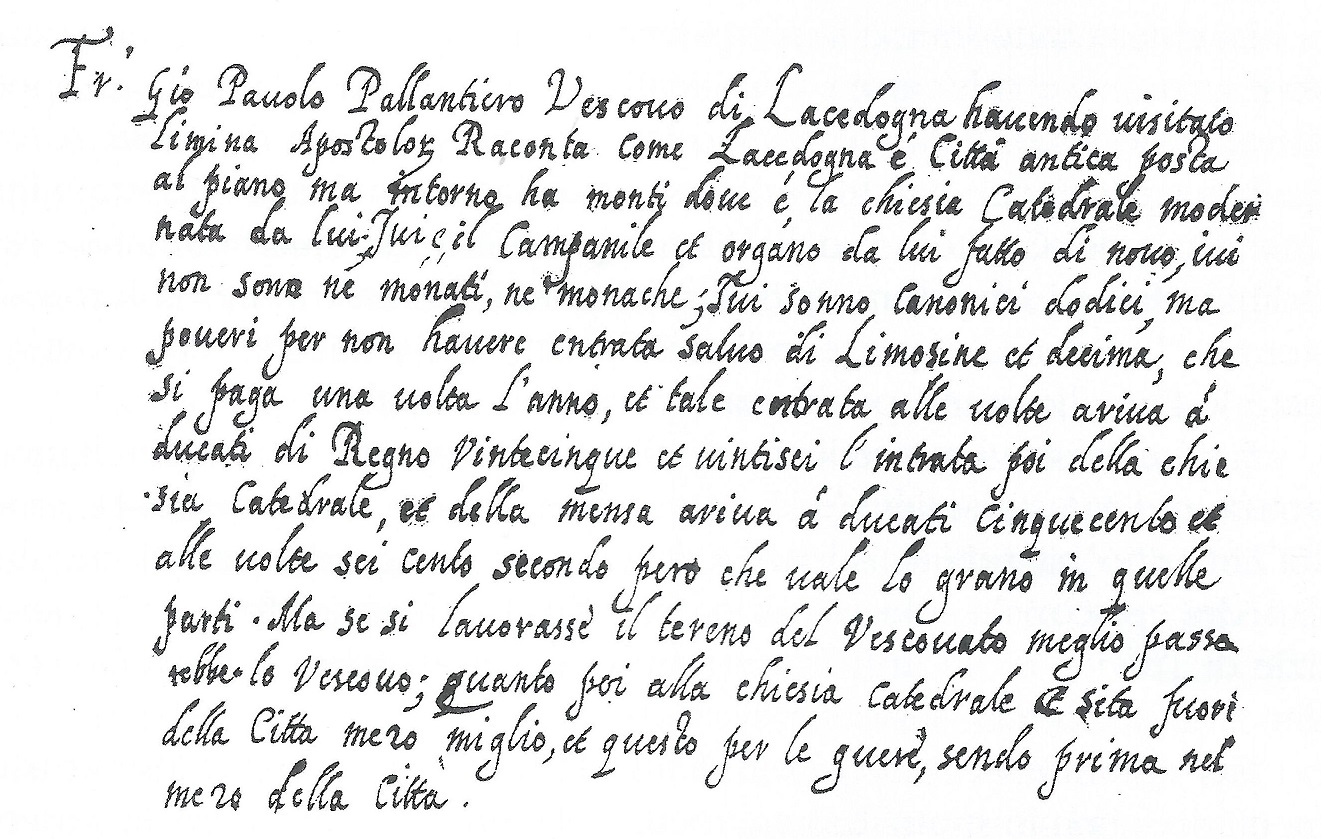 Fr. Gio Pauolo Pallantiero Vescouo di Lacedogna hauendo uisitato
Limina Apostoloꝝ Raconta come Lacedogna é Cittá antica posta
al piano ma intorno ha monti doue é, la chiesia Catedrale moder
nata da lui: Iui é il Campanile et organo da lui fatto di nouo, iui
non sono né monati, ne monache; Iui sonno Canonici dodici, ma
poueri per non hauere entrata saluo di Limosine et decima, che
si paga una uolta l'anno, et tale entrata alle uolte ariua á
ducati di Regno Vintecinque et uintisei l'intrata poi della chie
sia Catedrale, et della mensa ariua á ducati Cinquecento et
alle uolte sei cento secondo peró che uale lo grano in quelle
parti. Ma se si lauorasse il tereno del Vescouato meglio passa
rebbe lo Vescouo; quanto poi alla chiesia Catedrale é sita fuori
della Citta mezo miglio, et questo per le guere, sendo prima nel
mezo della Citta.